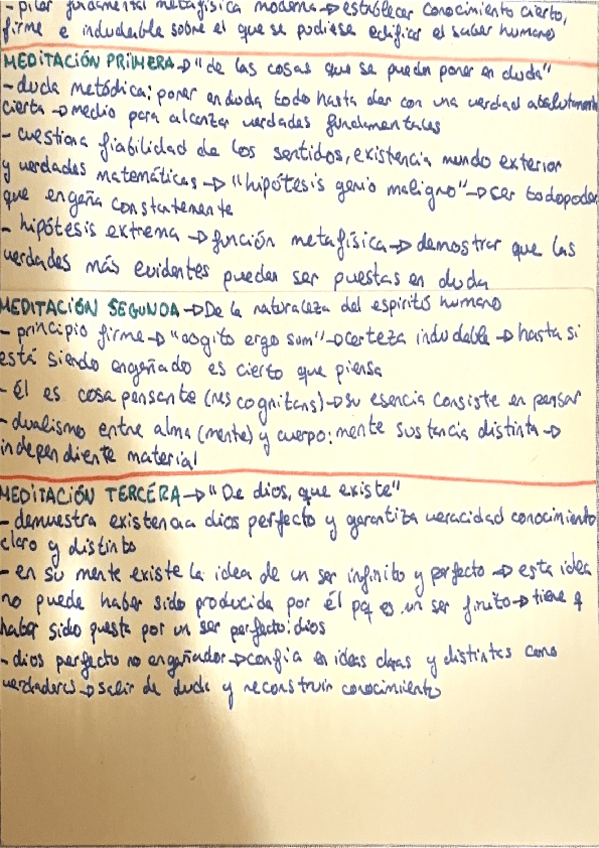 - pilar fundamental metafísica moderna → establecer conocimiento cierto,
firme e indudable sobre el que se pudiese edificar el saber humano
MEDITACIÓN PRIMERA → "de las cosas que se pueden poner en duda"
- duda metódica: poner en duda todo hasta dar con una verdad absolutamente
cierta → medio para alcanzar verdades fundamentales
- cuestiona fiabilidad de los sentidos, existencia mundo exterior
y verdades matemáticas → "hipótesis genio maligno" → ser todopoder
que engaña constantemente
- hipótesis extrema → función metafísica → demostrar que las
verdades más evidentes pueden ser puestas en duda
MEDITACIÓN SEGUNDA → De la naturaleza del espíritu humano
- principio firme → "cogito ergo sum" → certeza indudable → hasta si
está siendo engañado es cierto que piensa
- Él es cosa pensante (res cognitans) → su esencia consiste en pensar
- dualismo entre alma (mente) y cuerpo: mente sustancia distinta →
independiente material
MEDITACIÓN TERCERA → "De dios, que existe"
- demuestra existencia dios perfecto y garantiza veracidad conocimiento
claro y distinto
- en su mente existe la idea de un ser infinito y perfecto → esta idea
no puede haber sido producida por él pq es un ser finito → tiene q
haber sido puesta por un ser perfecto: dios
- dios perfecto no engañador → confía en ideas claras y distintas como
verdaderas → salir de duda y reconstruir conocimiento